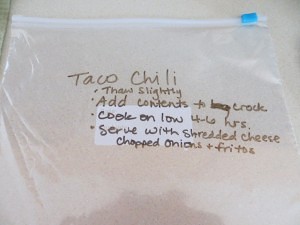 Taco Chili
• Thaw slightly
• Add contents to crock
• Cook on low 4-6 hrs.
• Serve with shredded cheese
chopped onions + fritos